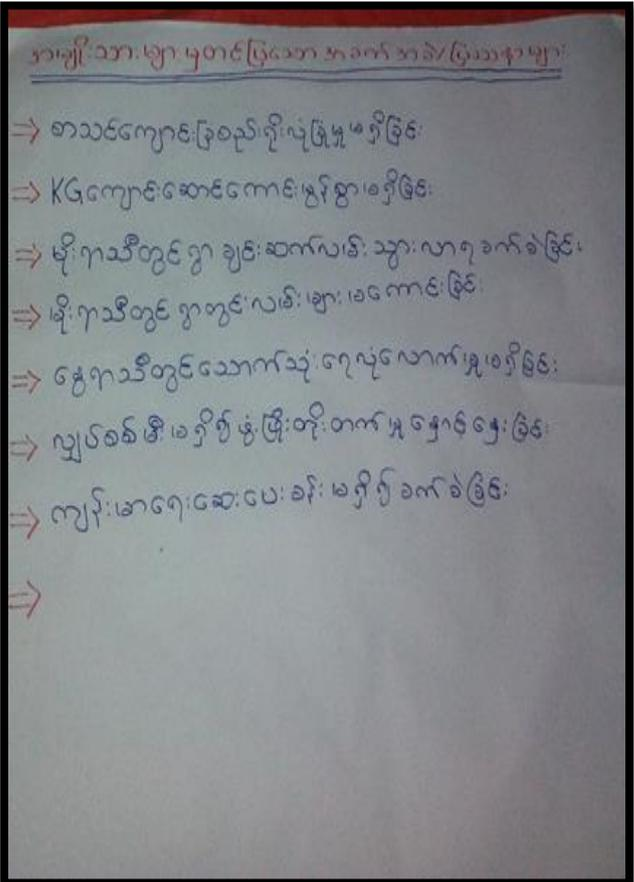 အမျိုးသားများမှတင်ပြသော အခက်အခဲ/ပြဿနာများ
⇒ စာသင်ကျောင်းခြံစည်းရိုးလုံခြုံမှုမရှိခြင်း
⇒ KGကျောင်းဆောင်ကောင်းမွန်စွာမရှိခြင်း
⇒ မိုးရာသီတွင် ရွာချင်းဆက်လမ်းသွားလာရခက်ခဲခြင်း
⇒ မိုးရာသီတွင် ရွာတွင်းလမ်းများမကောင်းခြင်း
⇒ နွေရာသီတွင်သောက်သုံးရေလုံလောက်မှုမရှိခြင်း
⇒ လျှပ်စစ်မီးမရှိ၍ဖွံ့ဖြိုးတိုးတက်မှုနှောင့်နှေးခြင်း
⇒ ကျန်းမာရေးဆေးပေးခန်းမရှိ၍ခက်ခဲခြင်း
⇒